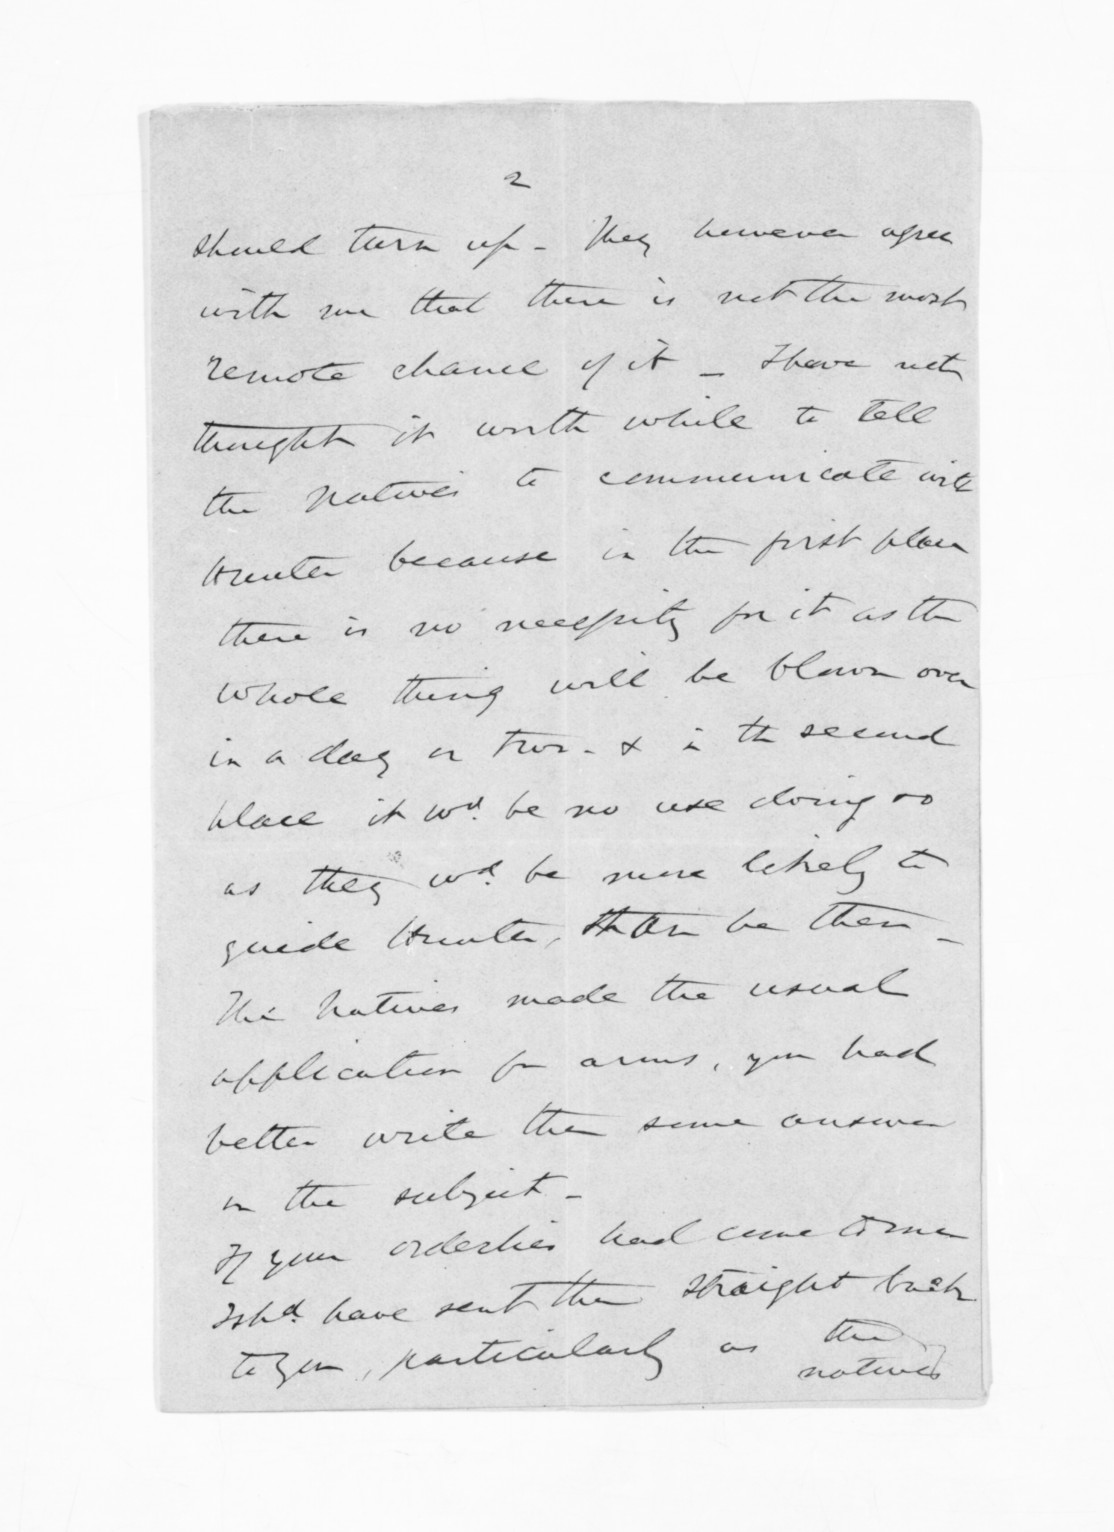 2
should turn up - They however agree
with me that there is not the most
remote chance of it - I have not
thought it worth while to tell
the natives to communicate with
Hunter because in the first place
there is no necessity for it as the
whole thing will be blown over
in a day or two - & in the second
place it wd. be no use doing so
as they wd. be more likely to
guide Hunter, than be then -
The Natives made the usual
application for arms, you had
better write them some answer
on the subject -
If your orderlies had come to me
I shd. have sent them straight back
to you, particularly as the
natives